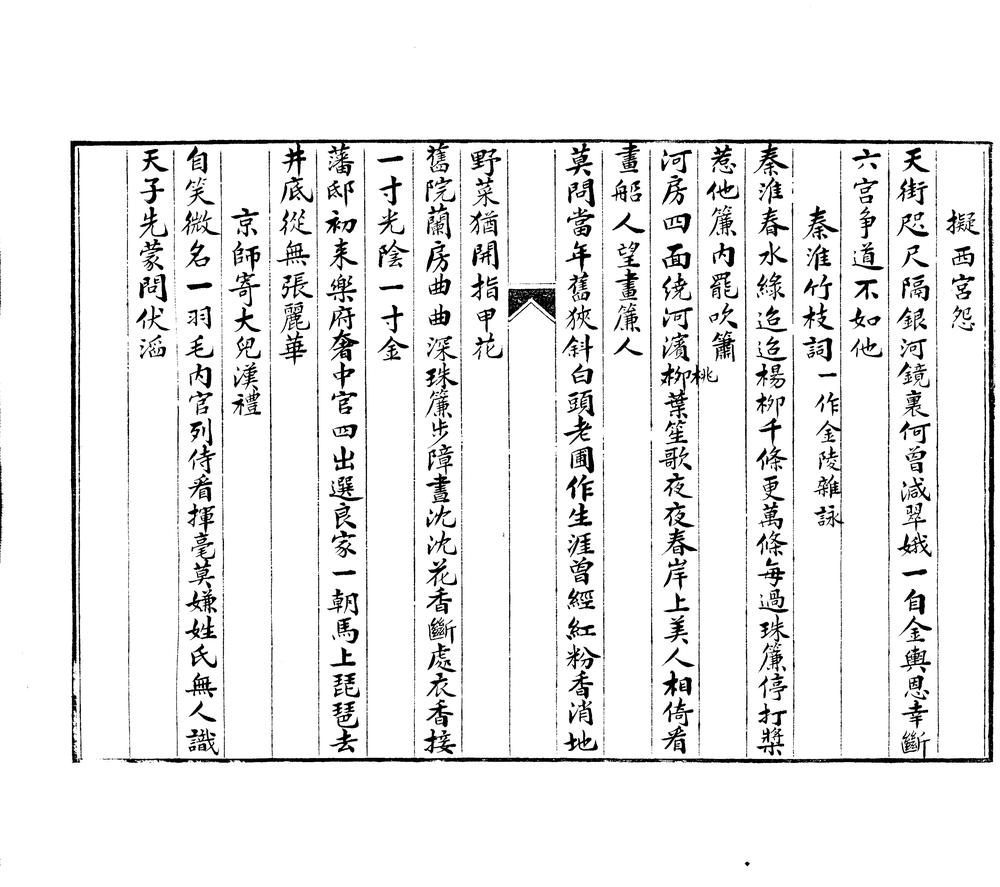 擬西宮怨
天街咫尺隔銀河鏡裏何曾減翠娥一自金輿恩幸斷
六宮争道不如他
秦淮竹枝詞一作金陵雜詠
秦淮春水綠迢迢楊柳千條更萬條每過珠簾停打槳
惹他簾內罷吹簫
河房四面繞河濱柳桃葉笙歌夜夜春岸上美人相倚看
畫船人望畫簾人
莫問當年舊狹斜白頭老圃作生涯曾經紅粉香消地
野菜猶開指甲花
舊院蘭房曲曲深珠簾步障晝沈沈花香斷處衣香接
一寸光陰一寸金
藩邸初来樂府奢中官四出選良家一朝馬上琵琶去
井底從無張麗華
京師寄大兒漢禮
自笑微名一羽毛內官列侍看揮毫莫嫌姓氏無人識
天子先蒙問伏滔